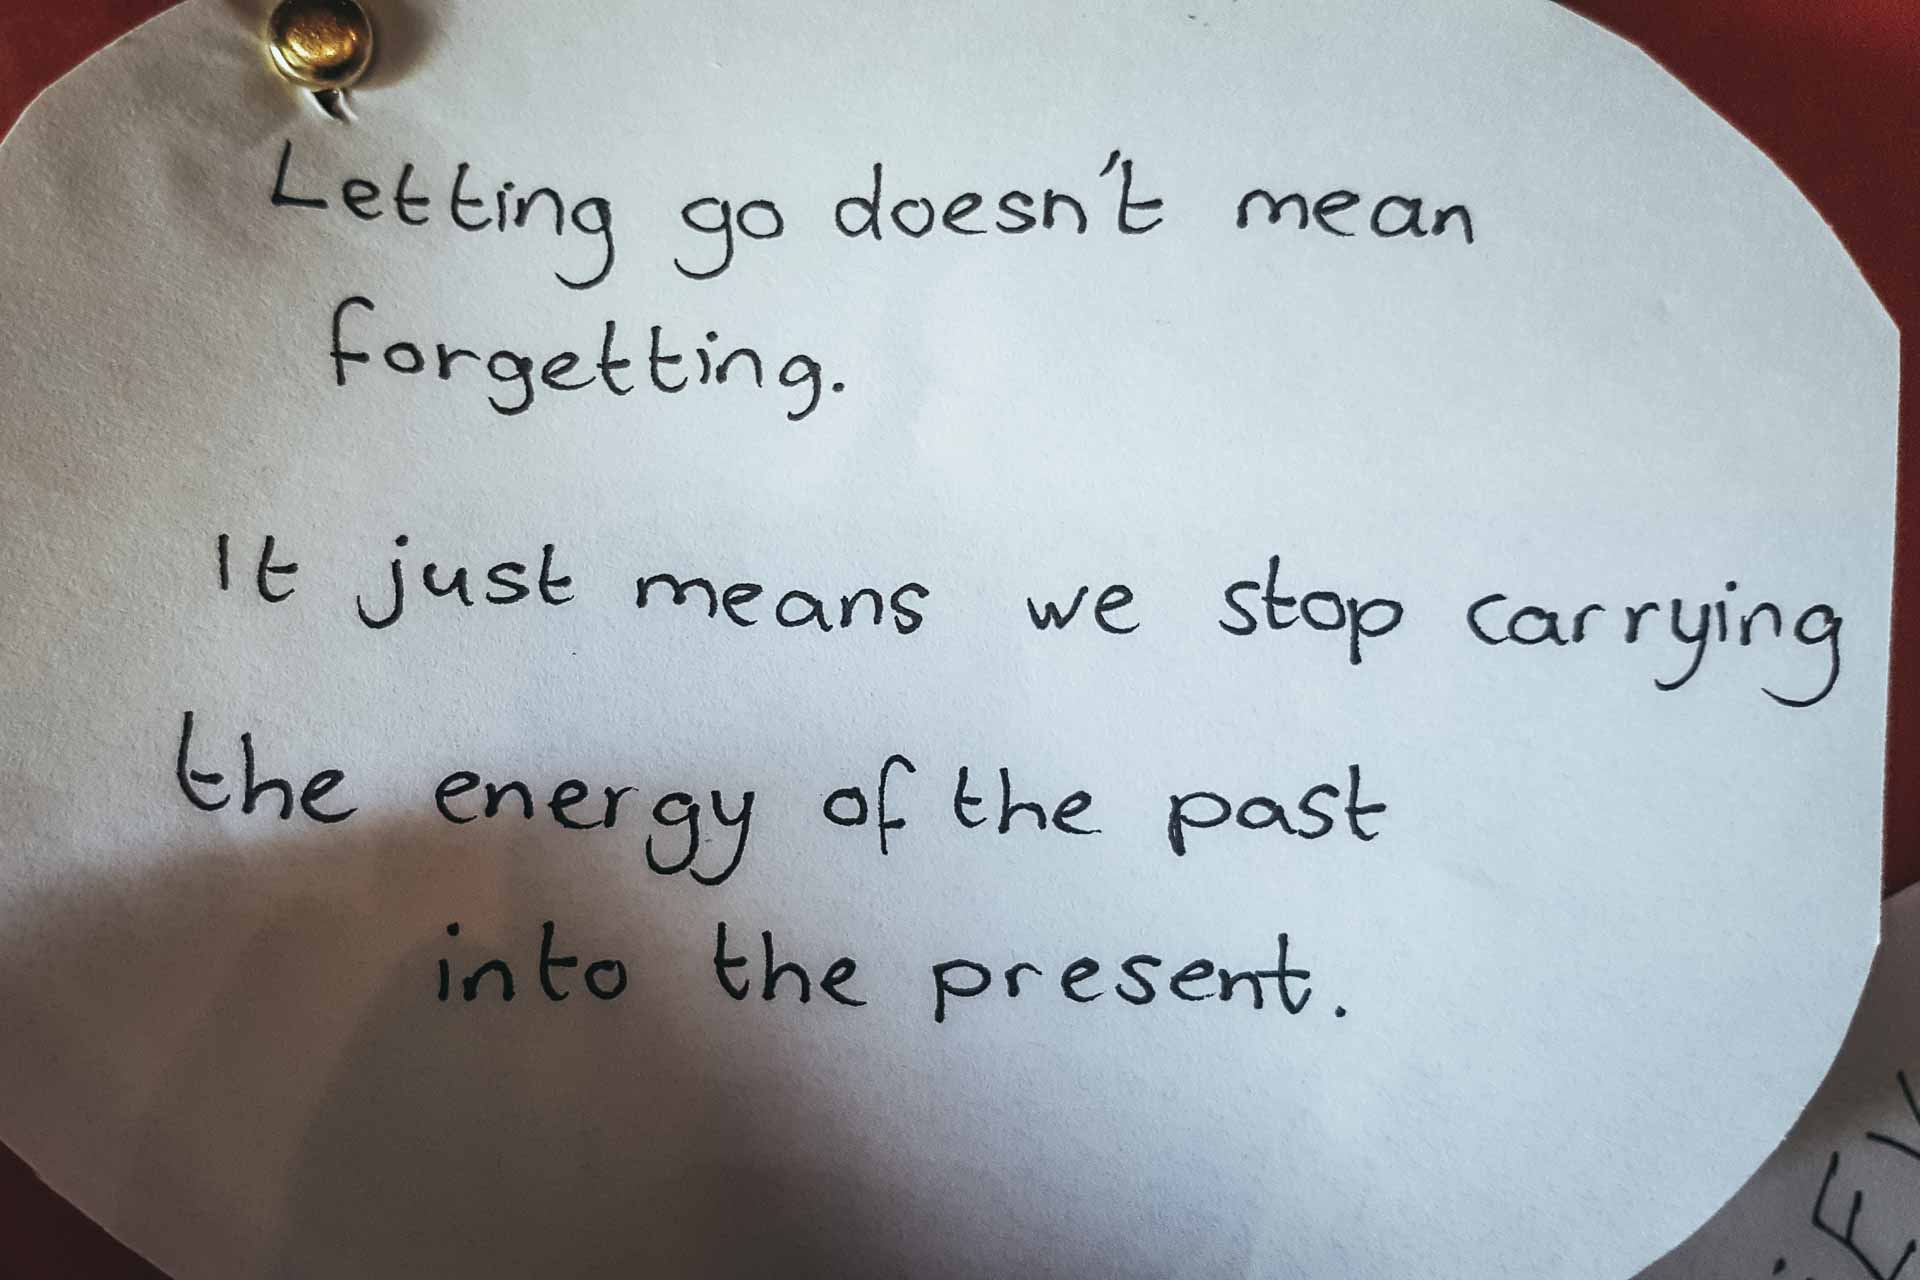 Letting go doesn't mean
forgetting.
It just means we stop carrying
the energy of the past
into the present.